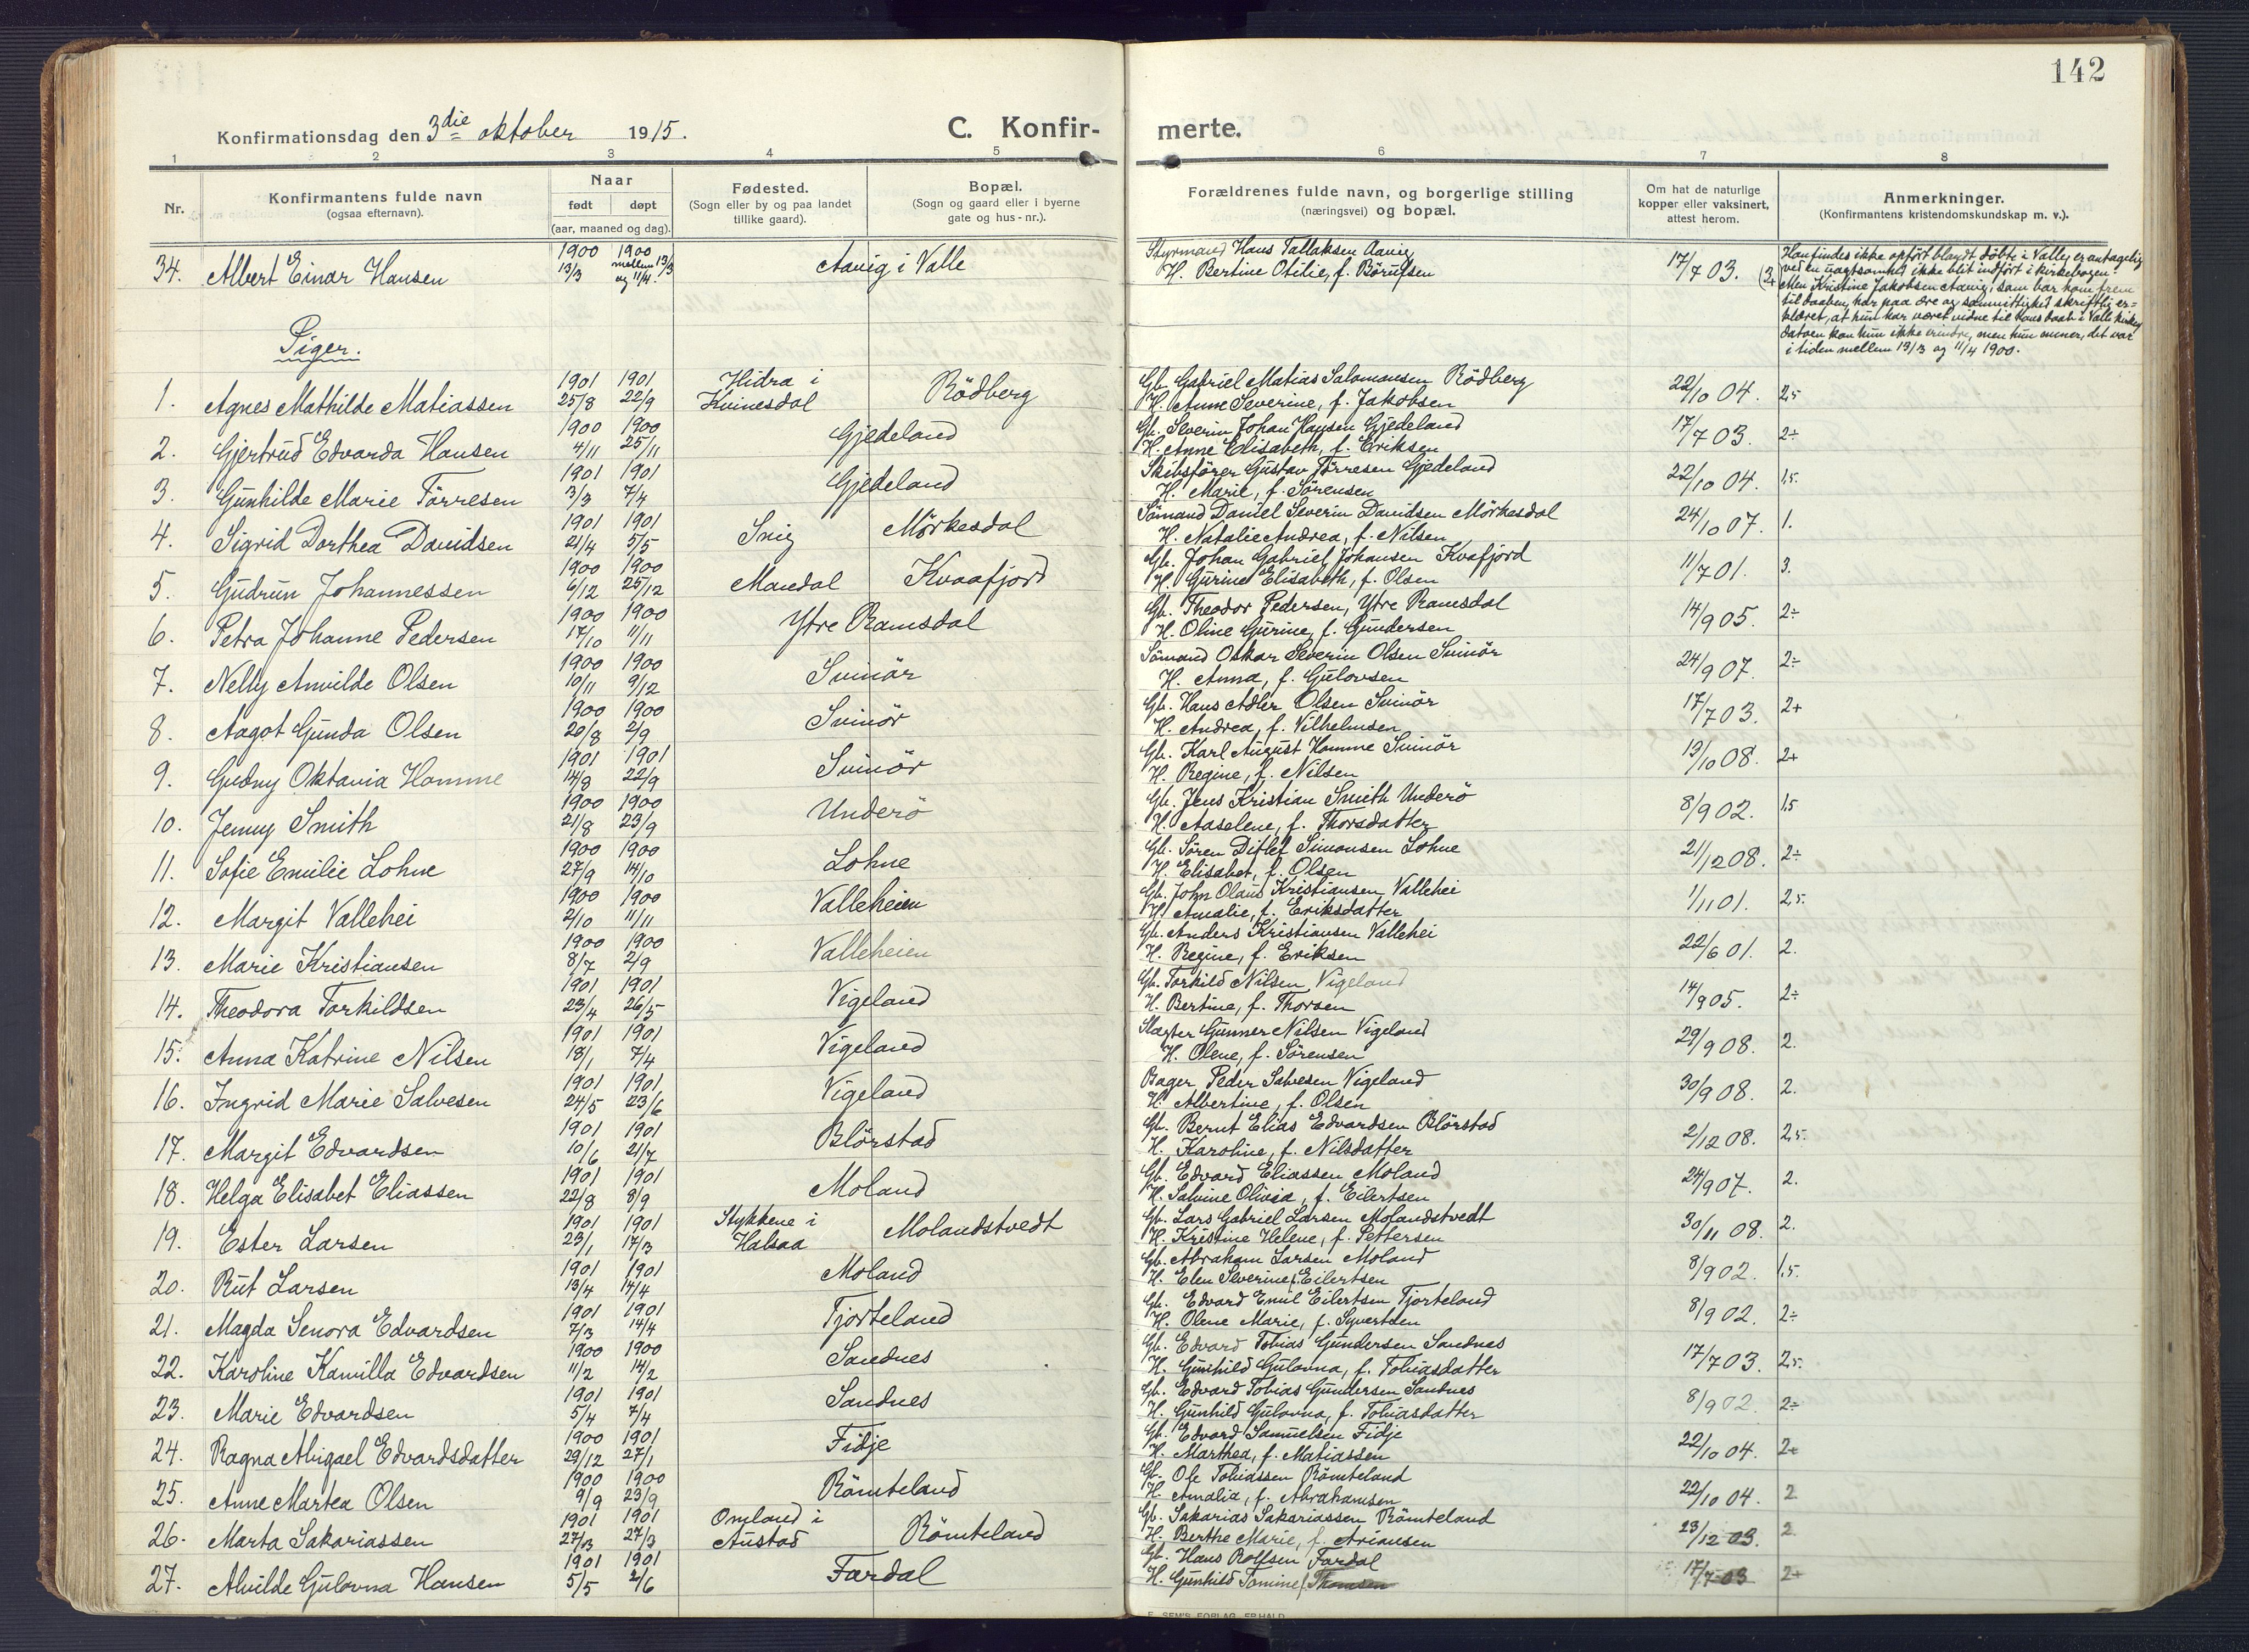 142
Konfirmationsdag den 3die oktober 1915.
C. Konfir-
merte.
1 2 3 4 5 6 7 8
Nr.
Konfirmantens fulde navn
(ogsaa efternavn).
Naar
født døpt
(aar, maaned og dag).
Fødested.
(Sogn eller by og paa landet
tillike gaard).
Bopæl.
(Sogn og gaard eller i byerne
gate og hus-nr.).
Forældrenes fulde navn, og borgerlige stilling
(næringsvei) og bopæl.
Om hat de naturlige
kopper eller vaksinert,
attest herom.
Anmerkninger.
(Konfirmantens kristendomskundskap m. v.).
1900 1900 Styrmand Hans Tallaksen Aavig
34. Albert Einar Hansen 13/3 mellem 13/3 og 11/4. Aavig i Valle H. Bertine Otilie, f. Börufsen 17/7 03. (2+)
Han findes ikke opført blandt döbte i Valle, er antagelig
ved en uagtsomhed ikke blit indført i kirkebogen.
Men Kristine Jakobsen Aavig, som bar ham frem
til daaben, har paa ære og samvittighed skriftlig er-
klæret, at hun har været vidne til hans daab i Valle kirke,
datoen kan hun ikke erindre, men hun mener, det var
i tiden mellem 13/3 og 11/4 1900.
Piger.
1901 1901 Hidra i Gb. Gabriel Matias Salomonsen Rödberg
1. Agnes Mathilde Matiassen 25/8 22/9 Kvinesdal Rödberg H. Anne Severine, f. Jakobsen 22/10 04. 2,5
1900 1900 Gb. Severin Johan Hansen Gjedeland
2. Gjertrud Edvarda Hansen 4/11 25/11 Gjedeland H. Anne Elisabeth, f. Eriksen 17/7 03. 2÷
1901 1901 Skibsförer Gustav Törresen Gjedeland
3. Gunhilde Marie Törresen 3/3 7/4 Gjedeland H. Marie, f. Sörensen 22/10 04. 1,5.
1901 1901 Sömand Daniel Severin Davidsen Mörkesdal
4. Sigrid Dorthea Davidsen 21/4 5/5 Snig Mörkesdal H. Natalie Andrea, f. Nilsen 24/10 07. 1.
1900 1900 Gb. Johan Gabriel Johansen Kvafjord
5. Gudrun Johannessen 6/12 25/12 Mandal Kvaafjord H. Gurine Elisabeth, f. Olsen 11/7 01. 3.
1900 1900 Gb. Theodor Pedersen, Ytre Ramsdal
6. Petra Johanne Pedersen 17/10 11/11 Ytre Ramsdal H. Oline Gurine, f. Gundersen 14/9 05. 2÷
1900 1900 Sömand Oskar Severin Olsen Svinör
7. Nelly Anvilde Olsen 10/11 9/12 Svinör H. Anna, f. Gulovsen 24/9 07. 2÷
1900 1900 Gb. Hans Adler Olsen Svinör
8. Aagot Gunda Olsen 20/8 2/9 Svinör H. Andrea, f. Vilhelmsen 17/7 03. 2+
1901 1901 Gb. Karl August Homme Svinör
9. Gudny Oktavia Homme 14/8 22/9 Svinör H. Regine, f. Nilsen 13/10 08. 2+
1900 1900 Gb. Jens Kristian Smith Underö
10. Jenny Smith 21/8 23/9 Underö H. Aaselene, f. Thorsdatter 8/9 02. 1,5
1900 1900 Gb. Sören Ditlef Simonsen Lohne
11. Sofie Emilie Lohne 27/9 14/10 Lohne H. Elisabet, f. Olsen 21/12 08. 2÷
1900 1900 Gb. John Olaus Kristiansen Vallehei
12. Margit Vallehei 2/10 11/11 Valleheien H. Amalie, f. Eriksdatter 1/11 01. 2,5.
1900 1900 Gb. Anders Kristiansen Vallehei
13. Marie Kristiansen 8/7 2/9 Valleheien H. Regine, f. Eriksen 22/6 01. 2.
1901 1901 Gb. Torkild Nilsen Vigeland
14. Theodora Torkildsen 23/4 26/5 Vigeland H. Bertine, f. Thorsen 14/9 05. 2÷
1901 1901 Slagter Gunner Nilsen Vigeland
15. Anna Katrine Nilsen 18/1 7/4 Vigeland H. Olene, f. Sörensen 29/9 08. 2.
1901 1901 Bager Peder Salvesen Vigeland
16. Ingrid Marie Salvesen 24/5 23/6 Vigeland H. Albertine, f. Olsen 30/9 08. 2.
1901 1901 Gb. Bernt Elias Edvardsen Blörstad
17. Margit Edvardsen 10/6 21/7 Blörstad H. Karoline, f. Nilsdatter 2/12 08. 2,5.
1901 1901 Gb. Edvard Eliassen Moland
18. Helga Elisabet Eliassen 22/8 8/9 Moland H. Salvine Olivia, f. Eilertsen 24/9 07. 2.
1901 1901 Stykkene i Gb. Lars Gabriel Larsen Molandstvedt
19. Ester Larsen 23/1 17/3 Halsaa Molandstvedt H. Kristine Helene, f. Pettersen 30/11 08. 2.
1901 1901 Gb. Abraham Larsen Moland
20. Rut Larsen 13/4 14/4 Moland H. Elen Severine f. Eilertsen 8/9 02. 1,5.
1901 1901 Gb. Edvard Emil Eilertsen Tjorteland
21. Magda Senora Edvardsen 7/3 14/4 Tjorteland H. Olene Marie, f. Syvertsen 8/9 02. 2÷
1900 1900 Gb. Edvard Tobias Gundersen Sandnes
22. Karoline Kamilla Edvardsen 11/2 14/2 Sandnes H. Gunhild Gulovna, f. Tobiasdatter 17/7 03. 2,5.
1901 1901 Gb. Edvard Tobias Gundersen Sandnes
23. Marie Edvardsen 5/4 7/4 Sandnes H. Gunhild Gulovna, f. Tobiasdatter 8/9 02. 2÷
1900 1901 Gb. Edvard Samuelsen Fidje
24. Ragna Abigael Edvardsdatter 29/12 27/1 Fidje H. Marthea, f. Matiassen 22/10 04. 2+
1900 1900 Gb. Ole Tobiassen Römteland
25. Anne Martea Olsen 9/9 23/9 Römteland H. Amalia, f. Abrahamsen 22/10 04. 2
1901 1901 Omland i Gb. Sakarias Sakariassen Römteland
26. Marta Sakariassen 27/3 Austad Römteland H. Berthe Marie, f. Ariansen 23/12 03. 2.
1901 1901 Gb. Hans Rolfsen Fardal
27. Alvilde Gulovna Hansen 5/5 2/6 Fardal H. Gunhild Tomine f. Thomsen 17/7 03 2+